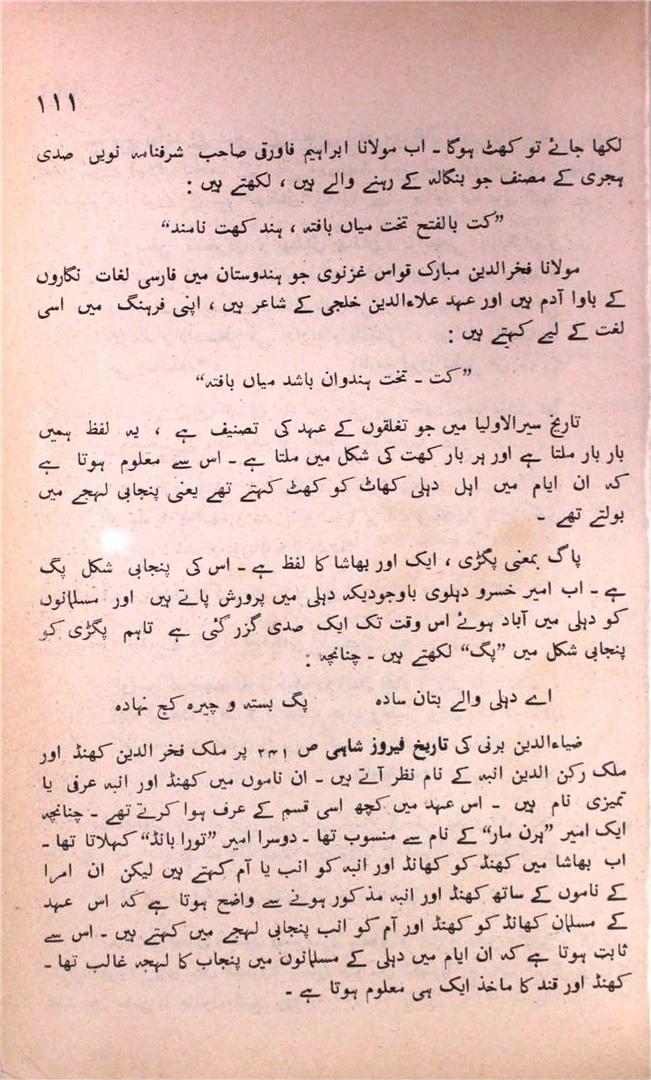 ۱۱۱
لکھا جائے تو کھٹ ہوگا ۔ اب مولانا ابراہیم فاروقی صاحب شرفنامہ نویں صدی
ہجری کے مصنف جو بنگالہ کے رہنے والے ہیں ، لکھتے ہیں :
”کت بالفتح تخت میاں بافتہ ، ہند کھت نامند“
مولانا فخرالدین مبارک قواس غزنوی جو ہندوستان میں فارسی لغات نگاروں
کے باوا آدم ہیں اور عہد علاءالدین خلجی کے شاعر ہیں ، اپنی فرہنگ میں اسی
لغت کے لیے کہتے ہیں :
”کت ۔ تخت ہندوان باشد میاں بافتہ“
تاریخ سیرالاولیا میں جو تغلقوں کے عہد کی تصنیف ہے ، یہ لفظ ہمیں
بار بار ملتا ہے اور ہر بار کھت کی شکل میں ملتا ہے ۔ اس سے معلوم ہوتا ہے
کہ ان ایام میں اہل دہلی کھاٹ کو کھٹ کہتے تھے یعنی پنجابی لہجے میں
بولتے تھے ۔
پاگ بمعنی پگڑی ، ایک اور بھاشا کا لفظ ہے ۔ اس کی پنجابی شکل پگ
ہے ۔ اب امیر خسرو دہلوی باوجودیکہ دہلی میں پرورش پاتے ہیں اور مسلمانوں
کو دہلی میں آباد ہوئے اس وقت تک ایک صدی گزر گئی ہے تاہم پگڑی کو
پنجابی شکل میں ”پگ“ لکھتے ہیں ۔ چنانچہ :
اے دہلی والے بتان سادہ پگ بستہ و چیرہ کج نہادہ
ضیاءالدین برنی کی تاریخ فیروز شاہی ص ۲۴۱ پر ملک فخر الدین کھنڈ اور
ملک رکن الدین انبہ کے نام نظر آتے ہیں ۔ ان ناموں میں کھنڈ اور انبہ عرفی یا
تمیزی نام ہیں ۔ اس عہد میں کچھ اسی قسم کے عرف ہوا کرتے تھے ۔ چنانچہ
ایک امیر ”ہرن مار“ کے نام سے منسوب تھا ۔ دوسرا امیر ”تورا بانڈ“ کہلاتا تھا ۔
اب بھاشا میں کھنڈ کو کھانڈ اور انبہ کو انب یا آم کہتے ہیں لیکن ان امرا
کے ناموں کے ساتھ کھنڈ اور انبہ مذکور ہونے سے واضح ہوتا ہے کہ اس عہد
کے مسلمان کھانڈ کو کھنڈ اور آم کو انب پنجابی لہجے میں کہتے ہیں ۔ اس سے
ثابت ہوتا ہے کہ ان ایام میں دہلی کے مسلمانوں میں پنجاب کا لہجہ غالب تھا ۔
کھنڈ اور قند کا ماخذ ایک ہی معلوم ہوتا ہے ۔